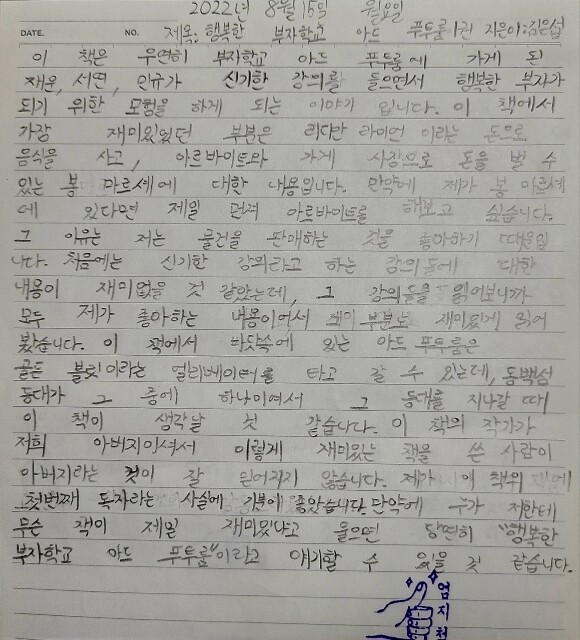 2022년 8월 15일 월요일
DATE. NO. 제목: 행복한 부자학교 아드 푸투룸 1권 지은이: 김은섭
이 책은 우연히 부자학교 아드 푸투룸에 가게 된
재운, 서연, 민규가 신기한 강의를 들으면서 행복한 부자가
되기 위한 모험을 하게 되는 이야기 입니다. 이 책에서
가장 재미있었던 부분은 리다만 라이언 이라는 돈으로
음식을 사고, 아르바이트와 가게 사장으로 돈을 벌 수
있는 봉 마르셰에 대한 내용입니다. 만약에 제가 봉 마르셰
에 있다면 제일 먼저 아르바이트를 해보고 싶습니다.
그 이유는 저는 물건을 판매하는 것을 좋아하기 때문입
니다. 처음에는 신기한 강의라고 하는 강의들에 대한
내용이 재미없을 것 같았는데, 그 강의들을 읽어보니까
모두 제가 좋아하는 내용이여서 부분도 재미있게 읽어
봤습니다. 이 책에서 바닷속에 있는 아드 푸투룸은
골든 불릿이라는 엘리베이터를 타고 갈 수 있는데, 동백섬
등대가 그 중에 하나이여서 그 등대를 지나갈 때
이 책이 생각날 것 같습니다. 이 책의 작가가
저희 아버지이셔서 이렇게 재미있는 책을 쓴 사람이
아버지라는 것이 잘 믿어지지 않습니다. 제가 이 책의
첫번째 독자라는 사실에 기분이 좋았습니다. 만약에 누가 저한테
무슨 책이 제일 재미있냐고 물으면 당연히 "행복한
부자학교 아드 푸투룸"이라고 얘기할 수 있을 것 같습니다.
엄지척